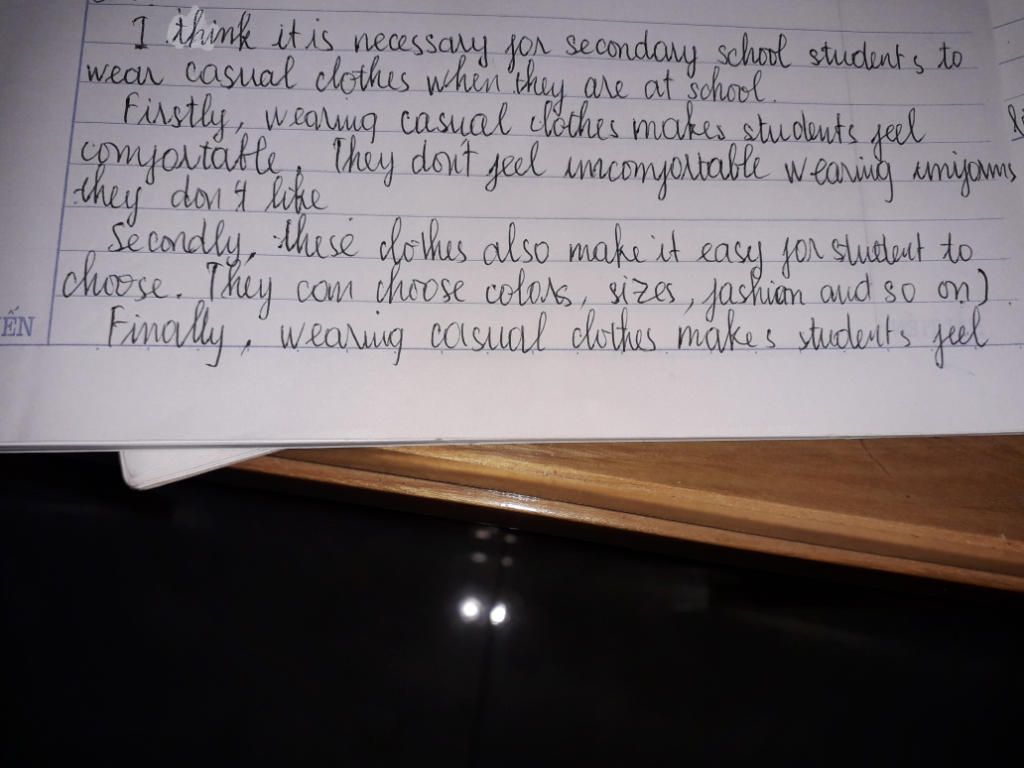 I think it is necessary for secondary school students to
wear casual clothes when they are at school.
Firstly, wearing casual clothes makes students feel
comfortable. They don't feel uncomfortable wearing uniforms
they don't like
Secondly, these clothes also make it easy for student to
choose. They can choose colors, sizes, fashion and so on).
ẾN
Finally, wearing casual clothes makes students feel